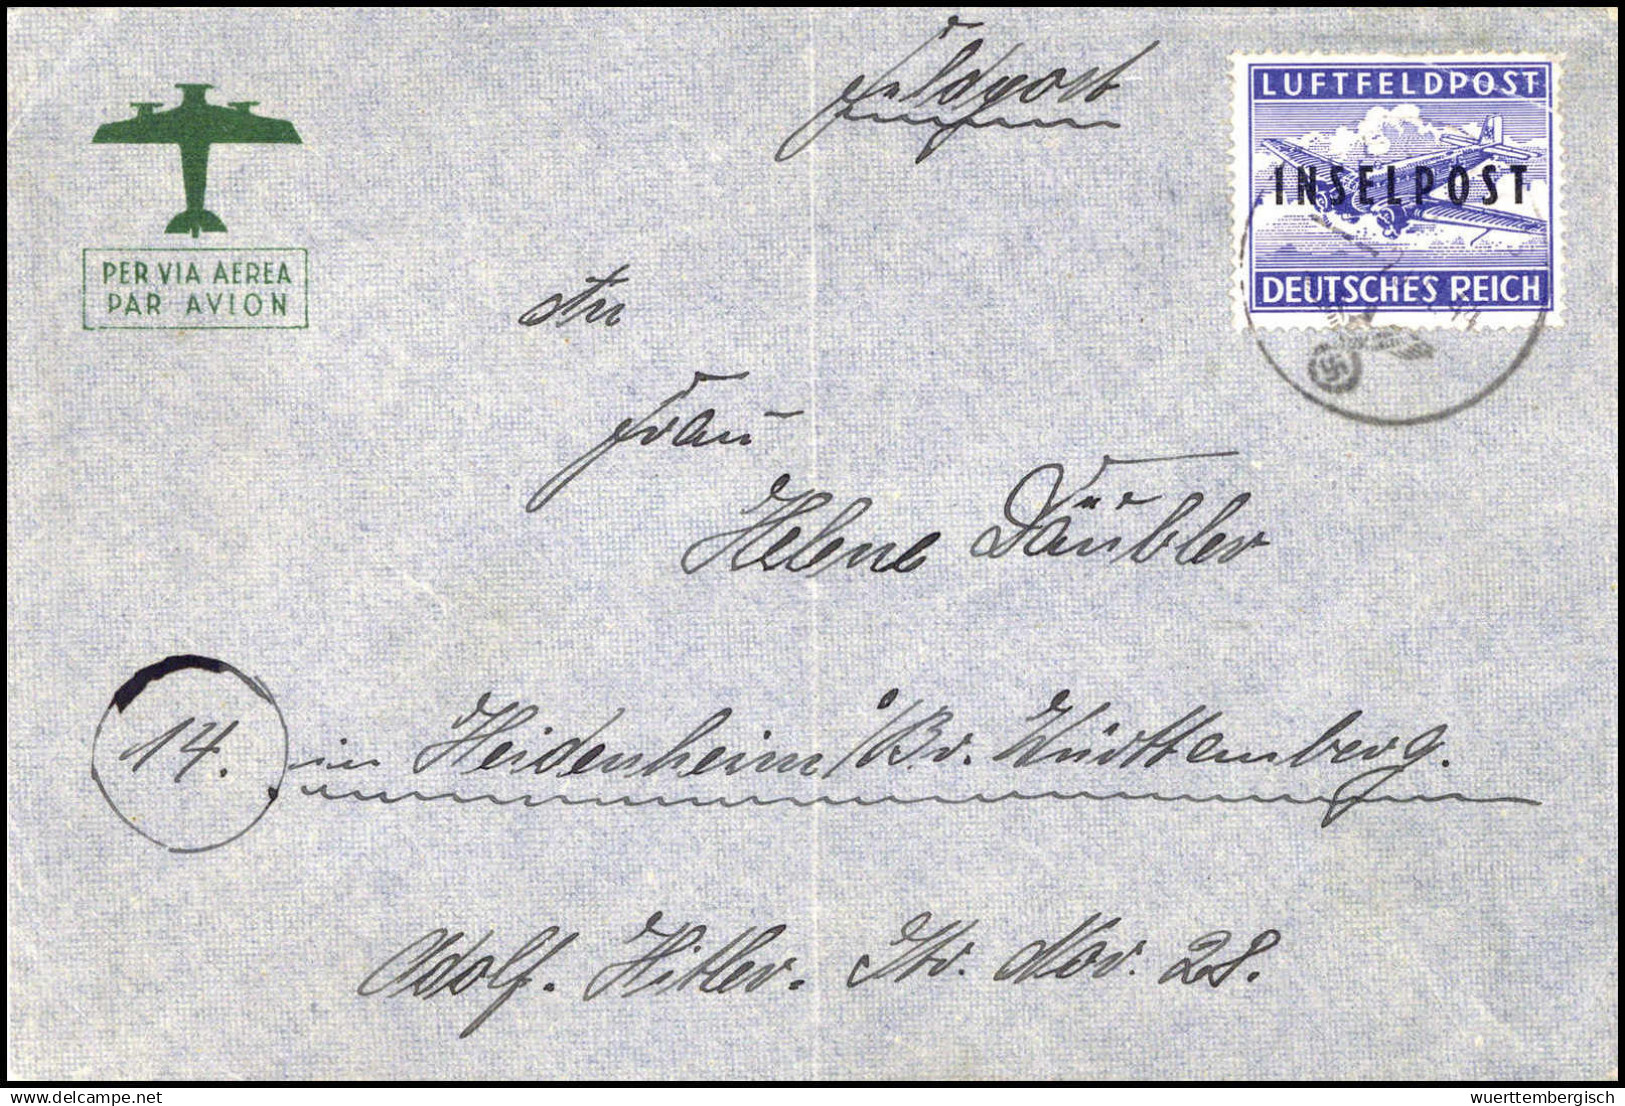 Feldpost
LUFTFELDPOST
INSELPOST
DEUTSCHES REICH
PER VIA AEREA
PAR AVION
An
Frau
Helene Däubler
14. in Heidenheim i/Br. Württemberg.
Adolf. Hitler. Str. Nor. 28.
wuerttembergisch